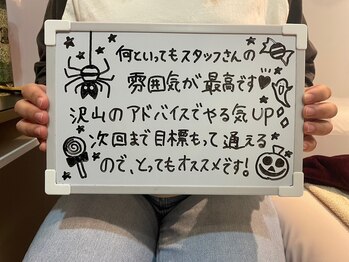 何といってもスタッフさんの
雰囲気が最高です♥
沢山のアドバイスでやる気UP
次回まで目標もって通える
ので、とってもオススメです!